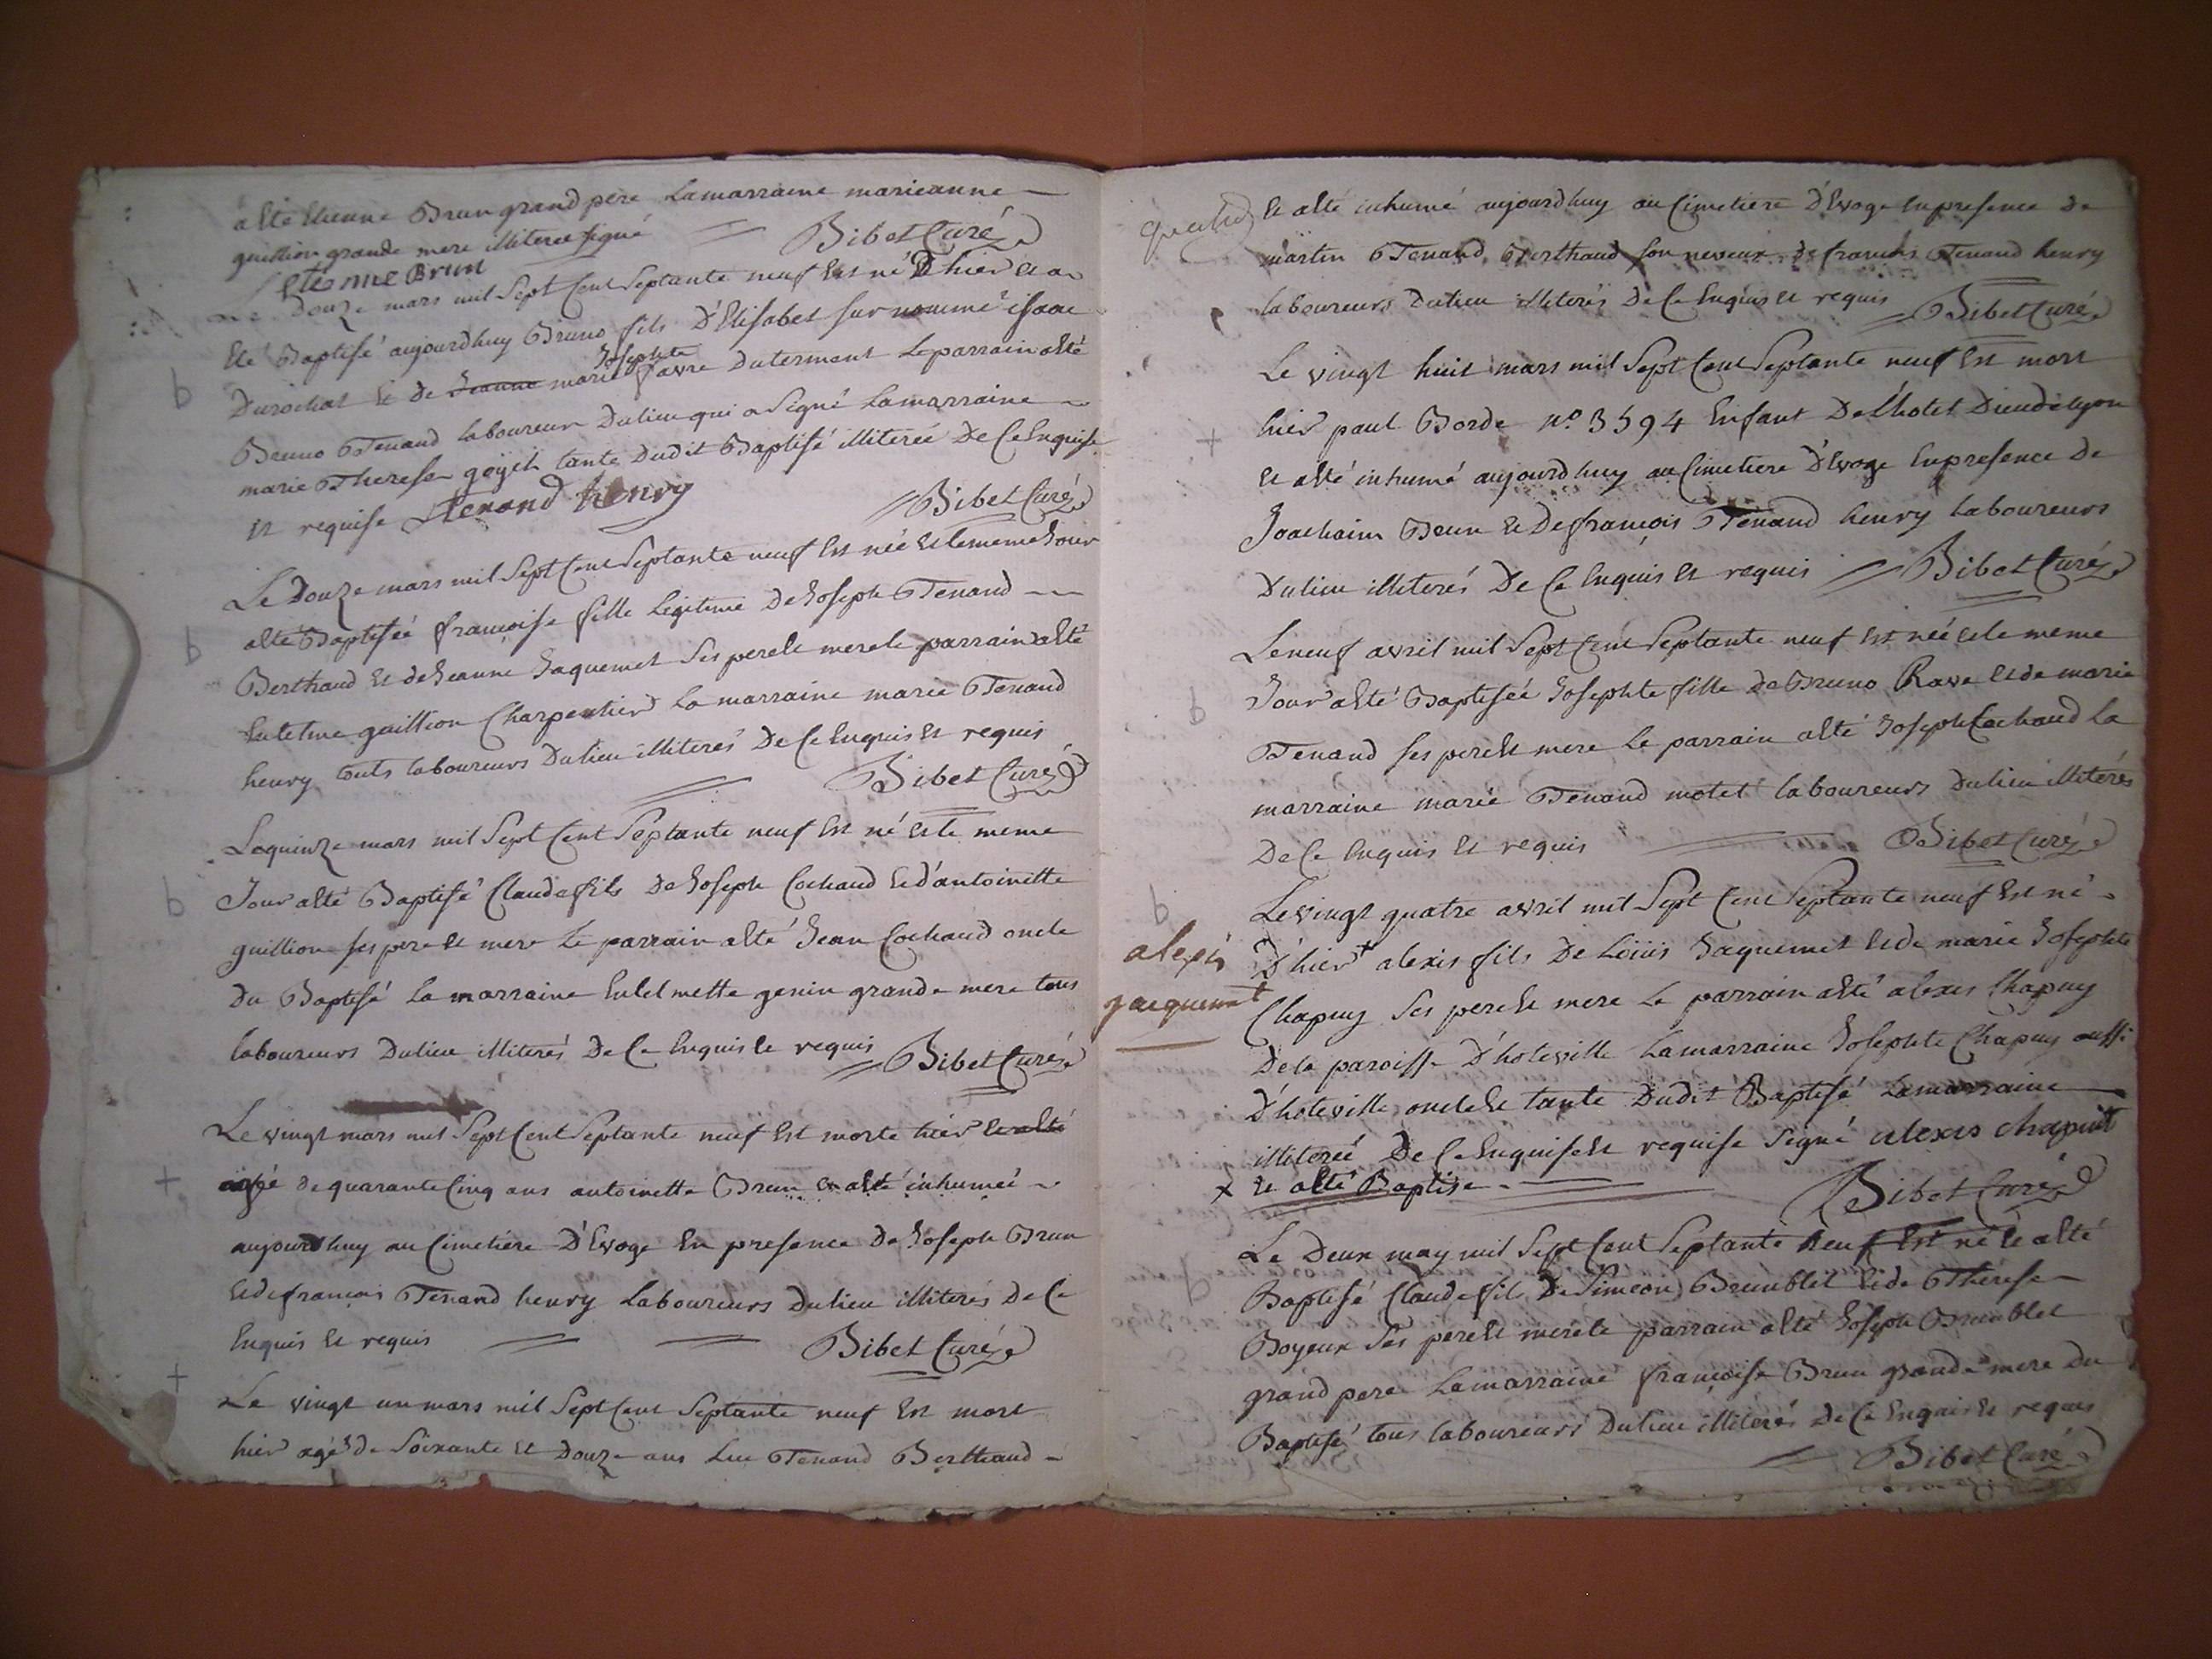 a Eté Etienne Brun grand pere La marraine marieanne
guillion grande mere illiterée signé Bibet Curé
Etienne Brun
Le Douze mars mil Sept Cent Septante neuf Est né D'hier et a
Eté Baptisé aujourdhuy Bruno fils D'Elisabet surnommé isaac
Josephte
Durochat Et de Jeanne marie favre Duterment Le parrain a Eté
Bruno Tenand laboureur Du lieu qui a Signé La marraine
marie Therese goÿet tante Dudit Baptisé illiterée De Ce Enquise
Et requise Tenand henry Bibet Curé
b
Le Douze mars mil Sept Cent Septante neuf Est née Et le meme Jour
a Eté Baptisée françoise fille Legitime De Joseph Tenand
Berthaud Et de Jeanne Jaquemet Ses pere Et mere le parrain a Eté
guillion Charpentier La marraine marie Tenand
henry touts laboureurs Du lieu illiterés De Ce Enquis Et requis
Bibet Curé
b
Le quinze mars mil Sept Cent Septante neuf Est né Et le meme
Jour a Eté Baptisé Claude fils De Joseph Cochaud Et d'antoinette
guillion ses pere Et mere Le parrain a Eté Jean Cochaud oncle
Du Baptisé La marraine genin grande mere tous
laboureurs Du lieu illiterés De Ce Enquis Et requis Bibet Curé
b
Le vingt mars mil Sept Cent Septante neuf Est morte hier et a Eté
+ agé de quarante Cinq ans antoinette Brun Et a Eté inhumée
aujourdhuy au Cimetiere D'Evoge En presence De Joseph Brun
Et de françois Tenand henry Laboureurs Du lieu illiterés De Ce
Enquis Et requis Bibet Curé
+
Le vingt un mars mil Sept Cent Septante neuf Est mort
hier agé De Soixante Et Douze ans Luc Tenand Berthaud
Et a Eté inhumé aujourdhuy au Cimetiere D'Evoge En presence De
martin Tenand Berthaud son neveux De francois Tenand henry
laboureurs Du lieu illiterés De Ce Enquis Et requis Bibet Curé
Le vingt huit mars mil Sept Cent Septante neuf Est mort
+ hier paul Borde N° 3594 Enfant De L'hotel Dieu de lyon
Et a Eté inhumé aujourdhuy au Cimetiere D'Evoge En presence De
Joachaim Brun Et De françois Tenand henry Laboureurs
Du lieu illiterés De Ce Enquis Et requis Bibet Curé
Le neuf avril mil Sept Cent Septante neuf Est née Et le meme
b Jour a Eté Baptisée Josephte fille De Bruno Rave Et de marie
Tenand Ses pere Et mere Le parrain a Eté Joseph Cochaud La
marraine marie Tenand motet laboureurs Du lieu illiterés
De Ce Enquis Et requis Bibet Curé
b
Le vingt quatre avril mil Sept Cent Septante neuf Est né
alexis D'hier + alexis fils De Loüis Jaquemet Et de marie Josephte
jacquemet Chapuy Ses pere Et mere Le parrain a Eté alexis Chapuy
De la paroisse D'hoteville La marraine Josephte Chapuy aussi
D'hoteville oncle Et tante Dudit Baptisé La marraine
illiterée De Ce Enquise Et requise Signé alexis chapuit
+ Et a Eté Baptisé Bibet Curé
Le Deux may mil Sept Cent Septante neuf Est né Et a Eté
Baptisé Claude fils De Simeon Brunblet Et de Therese
Boyeux Ses pere Et mere le parrain a Eté Joseph Brunblet
grand pere La marraine françoise Brun grande mere Du
Baptisé tous laboureurs Du lieu illiterés De Ce Enquis Et requis
Bibet Curé